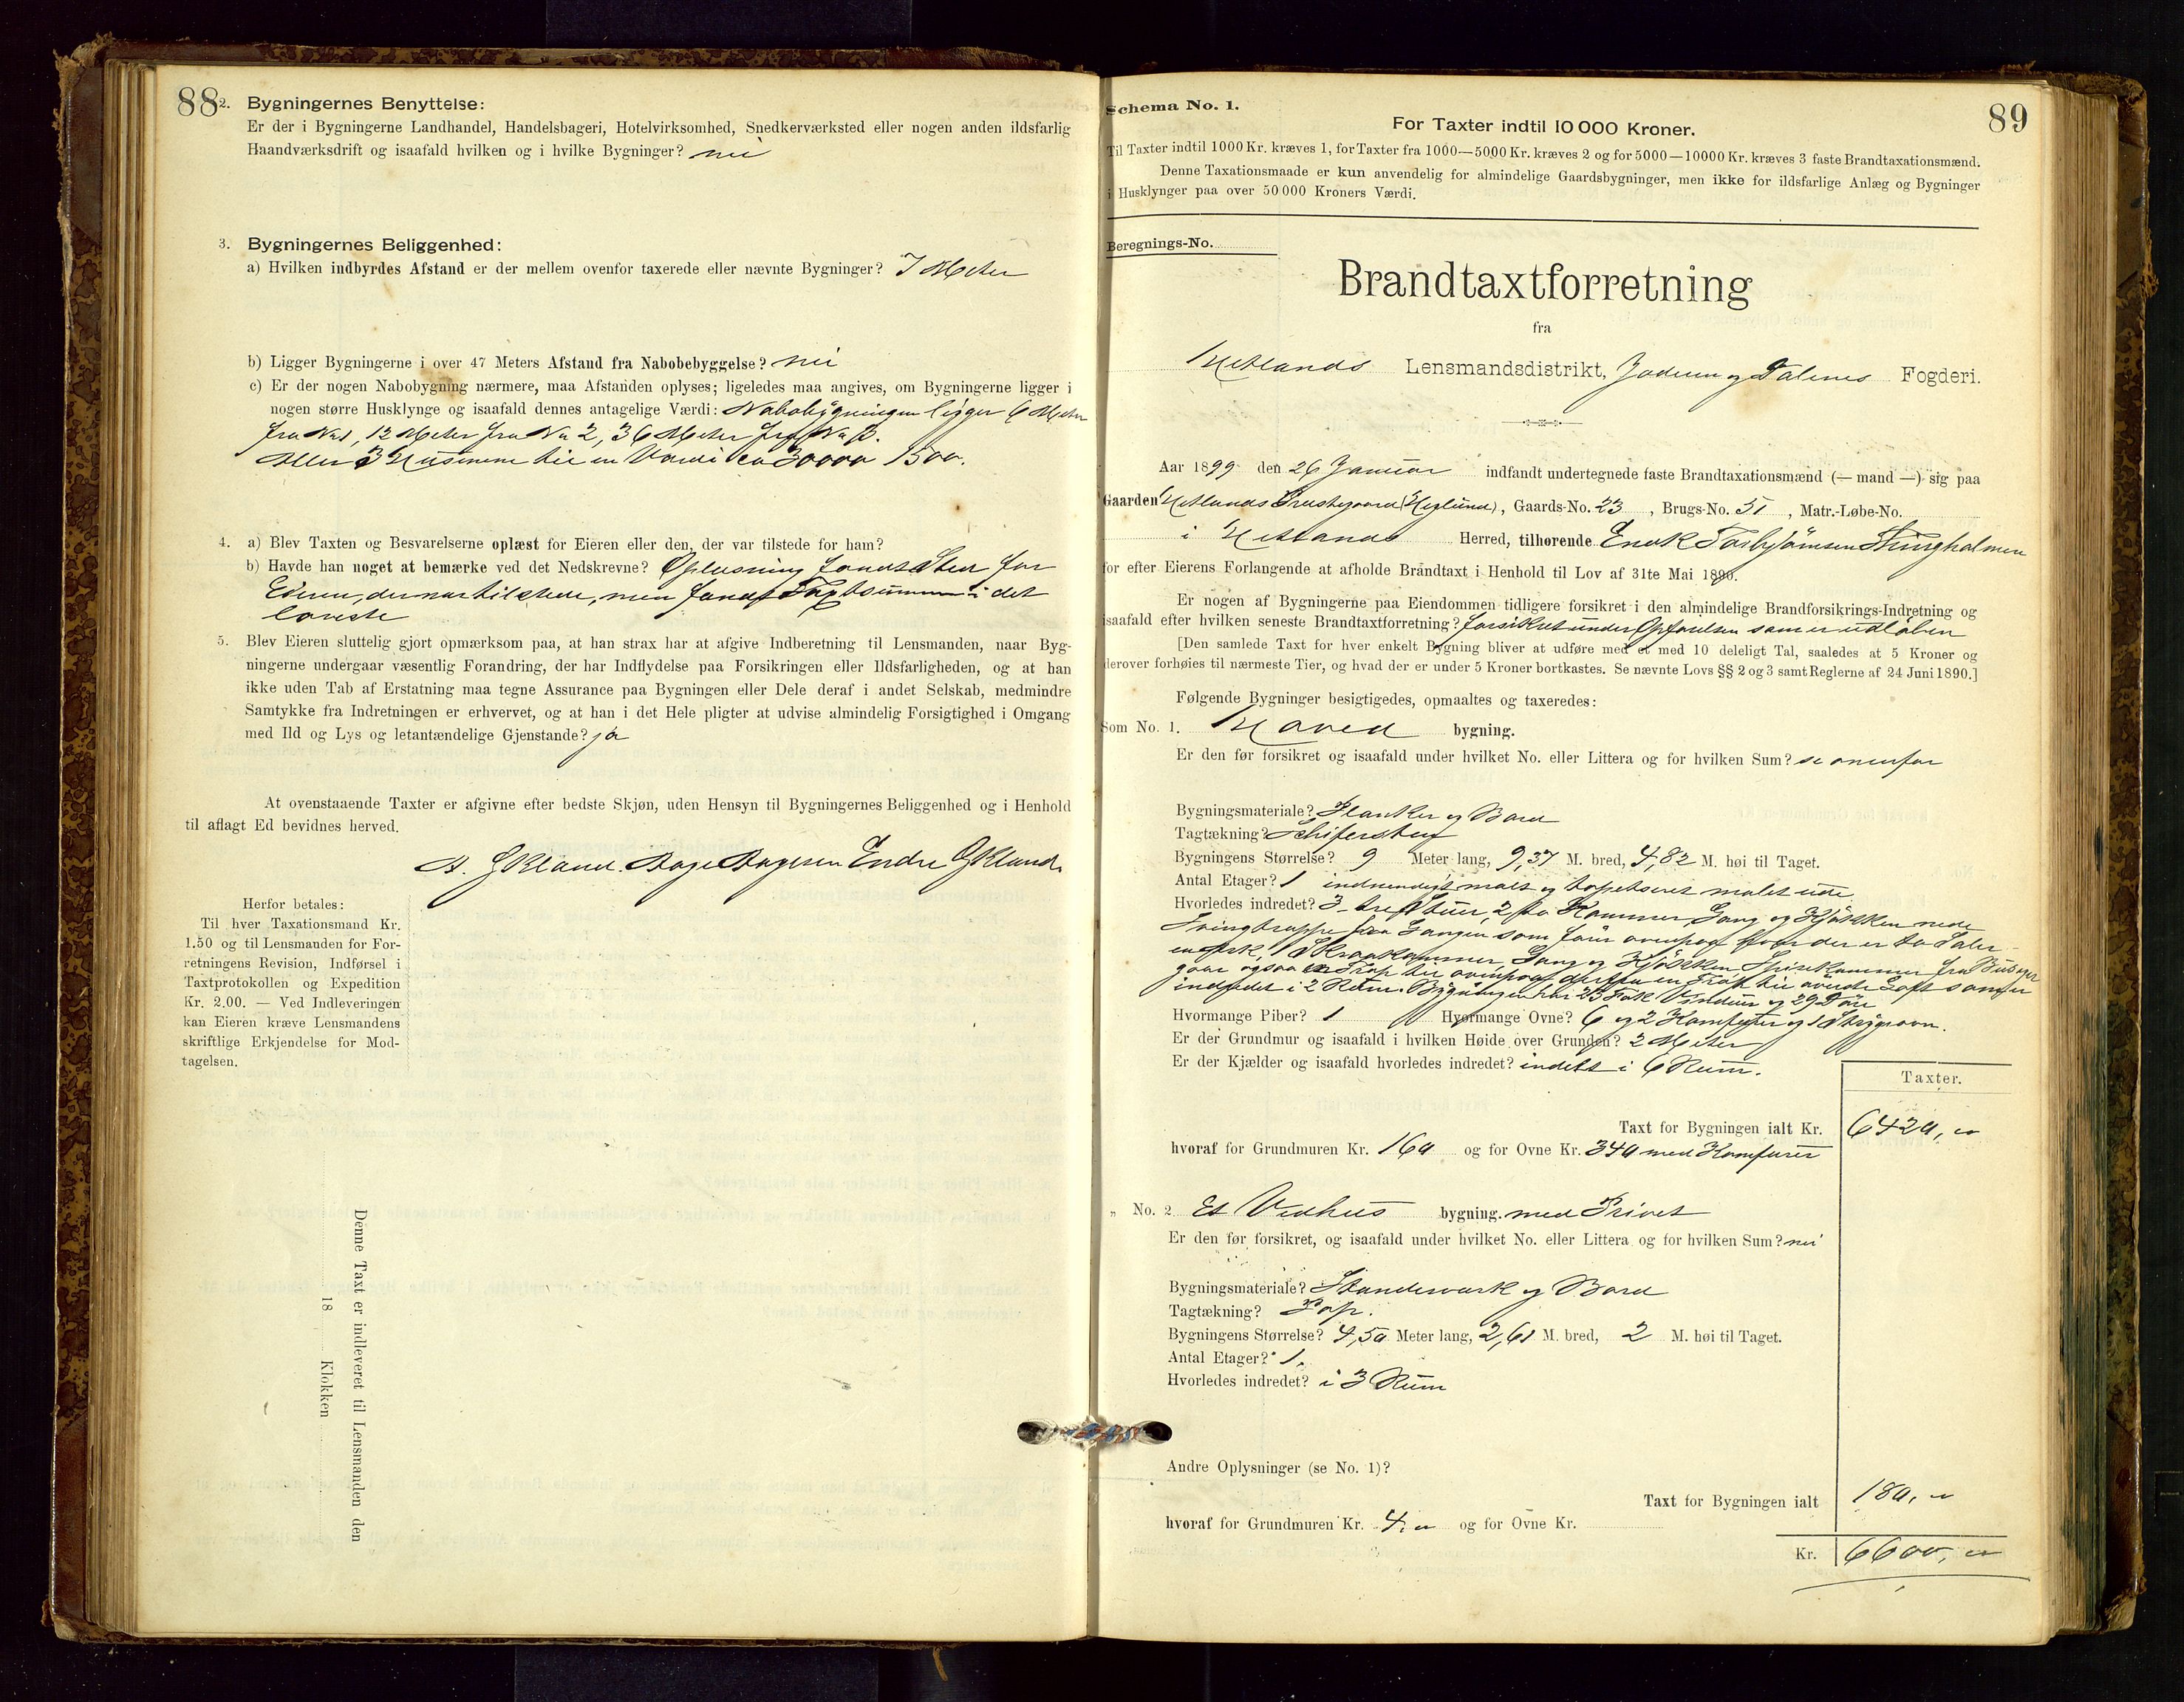 88
2. Bygningernes Benyttelse:
Er der i Bygningerne Landhandel, Handelsbageri, Hotelvirksomhed, Snedkerværksted eller nogen anden ildsfarlig
Haandværksdrift og isaafald hvilken og i hvilke Bygninger? nei
3. Bygningernes Beliggenhed:
a) Hvilken indbyrdes Afstand er der mellem ovenfor taxerede eller nævnte Bygninger? 7 Meter
b) Ligger Bygningerne i over 47 Meters Afstand fra Nabobebyggelse? nei
c) Er der nogen Nabobygning nærmere, maa Afstanden oplyses; ligeledes maa angives, om Bygningerne ligger i
nogen større Husklynge og isaafald dennes antagelige Værdi: Nabobygningen ligger 6 Meter
fra No 1, 12 Meter fra No 2, 36 Meter fra No 3.
Alle 3 Husene til en Værdi ca 30000 1500.
4. a) Blev Taxten og Besvarelserne oplæst for Eieren eller den, der var tilstede for ham?
b) Havde han noget at bemærke ved det Nedskrevne? Oplæsning fandt Sted for
Eieren, der var tilstede, men fandt Taxtsummen i det
laveste
5. Blev Eieren sluttelig gjort opmærksom paa, at han strax har at afgive Indberetning til Lensmanden, naar Byg-
ningerne undergaar væsentlig Forandring, der har Indflydelse paa Forsikringen eller Ildsfarligheden, og at han
ikke uden Tab af Erstatning maa tegne Assurance paa Bygningen eller Dele deraf i andet Selskab, medmindre
Samtykke fra Indretningen er erhvervet, og at han i det Hele pligter at udvise almindelig Forsigtighed i Omgang
med Ild og Lys og letantændelige Gjenstande? ja
At ovenstaaende Taxter er afgivne efter bedste Skjøn, uden Hensyn til Bygningernes Beliggenhed og i Henhold
til aflagt Ed bevidnes herved.
Aage Aagesen Endre
Herfor betales:
Til hver Taxationsmand Kr.
1.50 og til Lensmanden for For-
retningens Revision, Indførsel i
Taxtprotokollen og Expedition
Kr. 2.00. — Ved Indleveringen
kan Eieren kræve Lensmandens
skriftlige Erkjendelse for Mod-
tagelsen.
Denne Taxt er indleveret til Lensmanden den
18 Klokken
89
Schema No. 1.
For Taxter indtil 10 000 Kroner.
Til Taxter indtil 1000 Kr. kræves 1, for Taxter fra 1000—5000 Kr. kræves 2 og for 5000—10000 Kr. kræves 3 faste Brandtaxationsmænd.
Denne Taxationsmaade er kun anvendelig for almindelige Gaardsbygninger, men ikke for ildsfarlige Anlæg og Bygninger
i Husklynger paa over 50 000 Kroners Værdi.
Beregnings-No.
Brandtaxtforretning
fra
Hetlands Lensmandsdistrikt, Jæderen og Dalenes Fogderi.
Aar 1899 den 26 Januar indfandt undertegnede faste Brandtaxationsmænd (— mand —) sig paa
Gaarden Hetlands Prestegaard, Gaards-No. 23, Brugs-No. 51, Matr.-Løbe-No.
i Hetlands Herred, tilhørende Enok Torbjørnsen
for efter Eierens Forlangende at afholde Brandtaxt i Henhold til Lov af 31te Mai 1890.
Er nogen af Bygningerne paa Eiendommen tidligere forsikret i den almindelige Brandforsikrings-Indretning og
isaafald efter hvilken seneste Brandtaxtforretning? forsikret under Opførelsen som er udløben
[Den samlede Taxt for hver enkelt Bygning bliver at udføre med et med 10 deleligt Tal, saaledes at 5 Kroner og
derover forhøies til nærmeste Tier, og hvad der er under 5 Kroner bortkastes. Se nævnte Lovs §§ 2 og 3 samt Reglerne af 24 Juni 1890.]
Følgende Bygninger besigtigedes, opmaaltes og taxeredes:
Som No. 1. Hoved bygning.
Er den før forsikret og isaafald under hvilket No. eller Littera og for hvilken Sum? se ovenfor
Bygningsmateriale? Planker og Bord
Tagtækning? Schifersten
Bygningens Størrelse? 9 Meter lang, 9,37 M. bred, 4,82 M. høi til Taget.
Antal Etager? 1 indvendigt malt og tapetseret malet ude
Hvorledes indredet? 3 tre Stuer, 2 to Kammer, Gang og Kjøkken nede
Svingtrappe fra Gangen som fører ovenpaa hvor der er to Saler
en Ark, 1 Skraakammer, Gang og Kjøkken, Spisekammer fra
gaar ogsaa en Trap til ovenpaa, derfra en Trap til øverste Loft som er
indredet i 2 Rum. Bygningen har 23 Fak Vinduer og 29 Døre
Hvormange Piber? 1 Hvormange Ovne? 6 og 2 Komfyrer og 1 Strygeovn.
Er der Grundmur og isaafald i hvilken Høide over Grunden? 2 Meter
Er der Kjælder og isaafald hvorledes indredet? inddelt i 6 Rum.
Taxter.
Taxt for Bygningen ialt Kr. 6420,
hvoraf for Grundmuren Kr. 160 og for Ovne Kr. 340 med Komfurer
" No. 2 Et Vedhus bygning. med Privet
Er den før forsikret, og isaafald under hvilket No. eller Littera og for hvilken Sum? nei
Bygningsmateriale? Standerværk og Bord
Tagtækning? Pap.
Bygningens Størrelse? 4,50 Meter lang, 2,61 M. bred, 2 M. høi til Taget.
Antal Etager? 1.
Hvorledes indredet? i 3 Rum
Andre Oplysninger (se No. 1)?
Taxt for Bygningen ialt 180,
hvoraf for Grundmuren Kr. 4, og for Ovne Kr.
Kr. 6600,